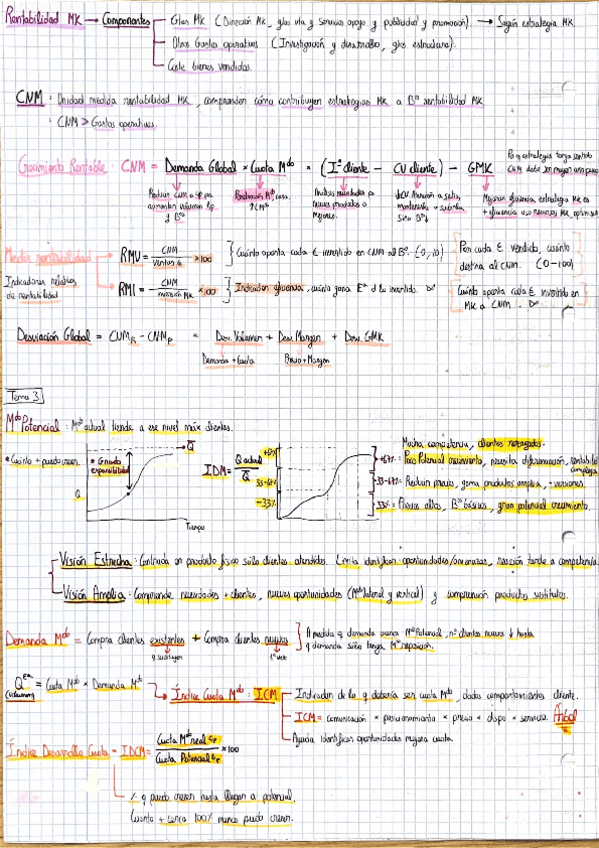 Rentabilidad MK → Componentes
Gtos MK (Dirección MK, gtos vta y servicios apoyo y publicidad y promoción). → Según estrategia MK.
Otros Gastos operativos (Investigación y desarrollo, gtos estructura).
Coste bienes vendidos.
CNM: Unidad medida rentabilidad MK, comprenden cómo contribuyen estrategias MK a Bº rentabilidad MK
: CNM > Gastos operativos.
Crecimiento Rentable: CNM = Demanda Global × Cuota Mdo × (Iº cliente − CV cliente) − GMK
Medir rentabilidad
RMV = CNM / Ventas € ×100 } Cuánto aporta cada € invertido en CNM al Bº.
Por cada € vendido, cuánto destina al CNM. (0-100)
Indicadores relativos de rentabilidad
RMI = CNM / Inversión MK ×100 } Indicador eficiencia, cuánto gana Eª d lo invertido. ∞
Cuánto aporta cada € invertido en MK a CNM. ∞
Desviación Global = CNM_R − CNM_P = Desv. Volumen + Desv. Margen + Desv. GMK
Demanda + Cuota
Precio + Margen
Tema 3
Mdo Potencial: Mdo actual tiende a ese nivel máx clientes.
* Cuánto + puedo crecer.
* Grado expansibilidad
Q
Q
Tiempo
IDM = Q actual / Q
+67%
33-67%
-33%
Mucha competencia, clientes rezagados.
+67%: Poco Potencial crecimiento, necesita diferenciación,
33-67%: Reducir precios, gama productos amplia, + versiones.
33%: Precios altos, Bº básicos, gran potencial crecimiento.
Visión Estrecha: Centrada en producto físico sólo clientes atendidos. Limita identificar oportunidades/amenazas, reacción tarde a competencia.
Visión Amplia: Comprende necesidades + clientes, nuevas oportunidades (Mdo lateral y vertical) y comprensión productos sustitutos.
Demanda Mdo = Compra clientes existentes + Compra clientes nuevos
1ª vez
A medida q demanda acerca Mdo Potencial, nº clientes nuevos ↓ hasta
q demanda sólo tenga Mdo reposición.
Q Eª = Cuota Mdo × Demanda Mdo
(volumen)
Índice Cuota Mdo: ICM
Indicador de lo q debería ser cuota Mdo, dados comportamientos cliente.
ICM = comunicación × posicionamiento × precio × dispo × servicio. Árbol
Ayuda identificar oportunidades mejora cuota.
Índice Desarrollo Cuota = IDCM = Cuota Mdo real / Cuota Potencial ×100
% q puedo crecer hasta llegar a potencial.
Cuanto + cerca 100% menos puedo crecer.